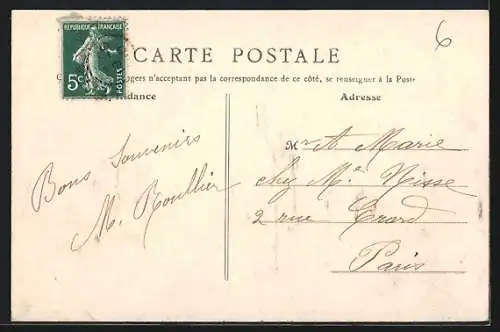 6
REPUBLIQUE FRANÇAISE
5c
POSTES
CARTE POSTALE
C gers n'acceptant pas la correspondance de ce côté, se renseigner à la Poste
ndance
Adresse
Bons Souvenirs
M. Roullier
Mr A Marie
chez Me Nisse
2 rue Erard
Paris